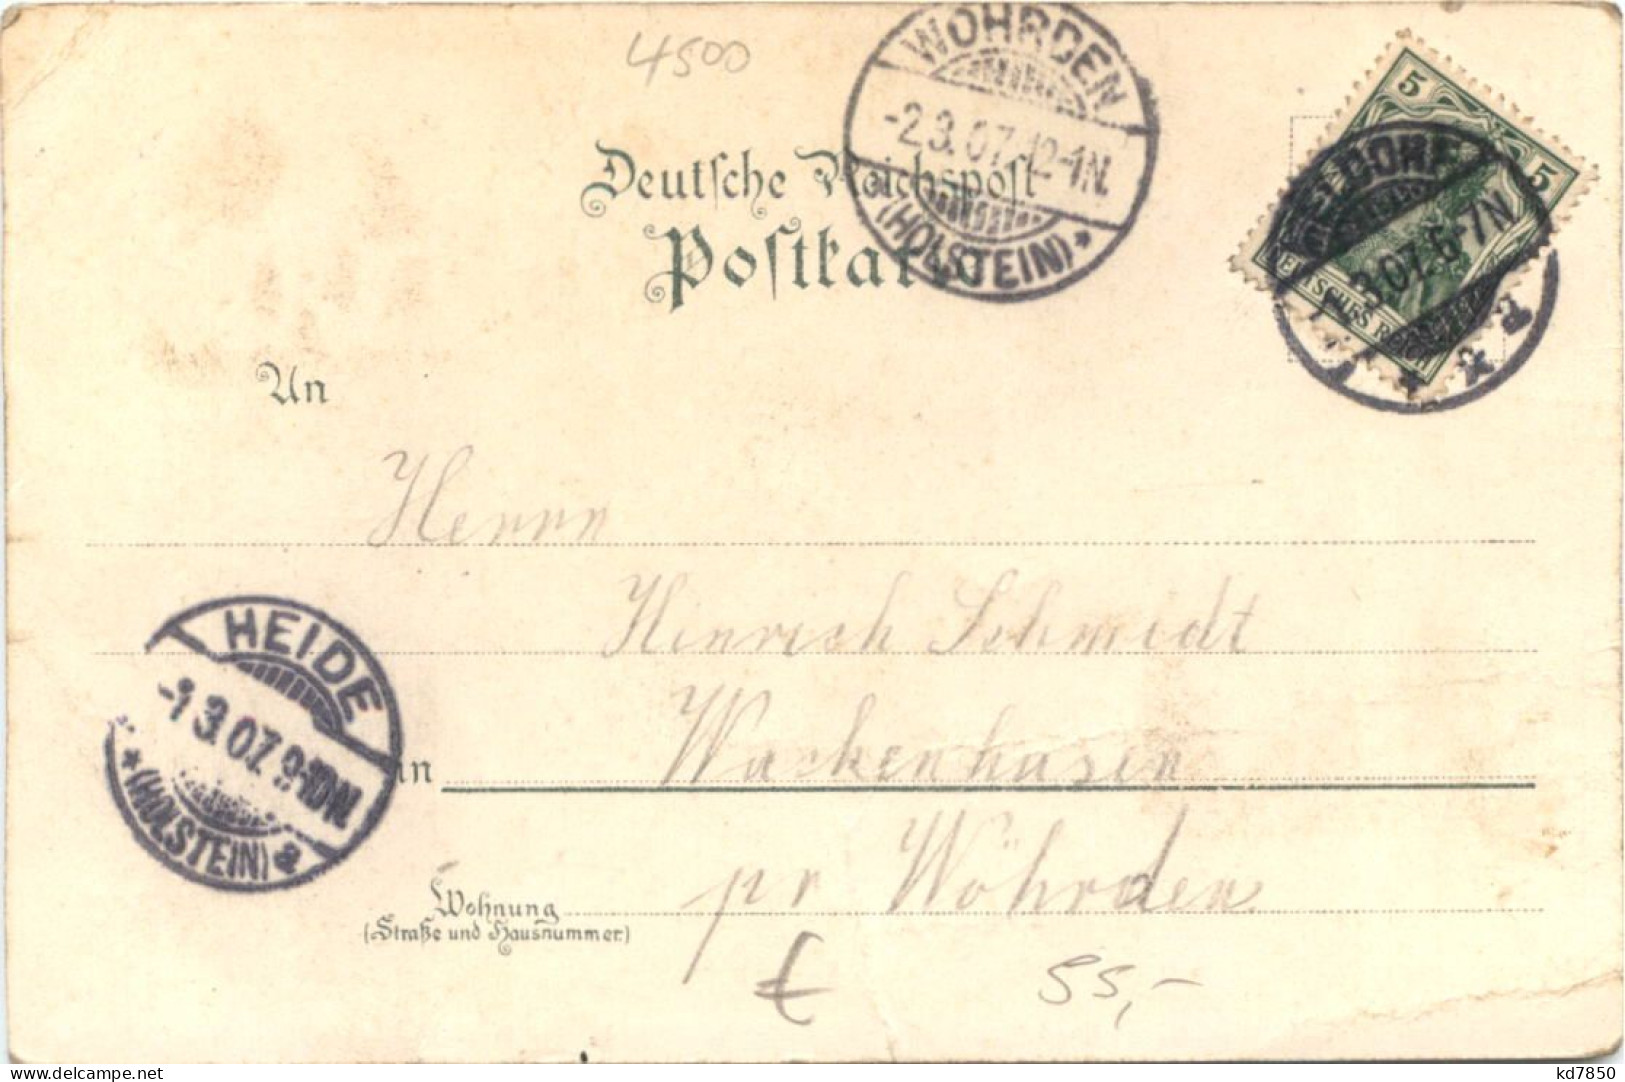 4500
WÖHRDEN
-2.3.07.12-1N.
(HOLSTEIN)*
5
5
MELDORF
3.07.6-7N
DEUTSCHES REICH
* * a
Deutsche Reichspost
Postkarte
An
Herrn
Hinrich Schmidt
HEIDE
-1.3.07.9-10N.
*(HOLSTEIN)a
in Wackenhusen
pr Wöhrden
Wohnung
(Straße und Hausnummer)
€ 55,-
delcampe.net
kd7850